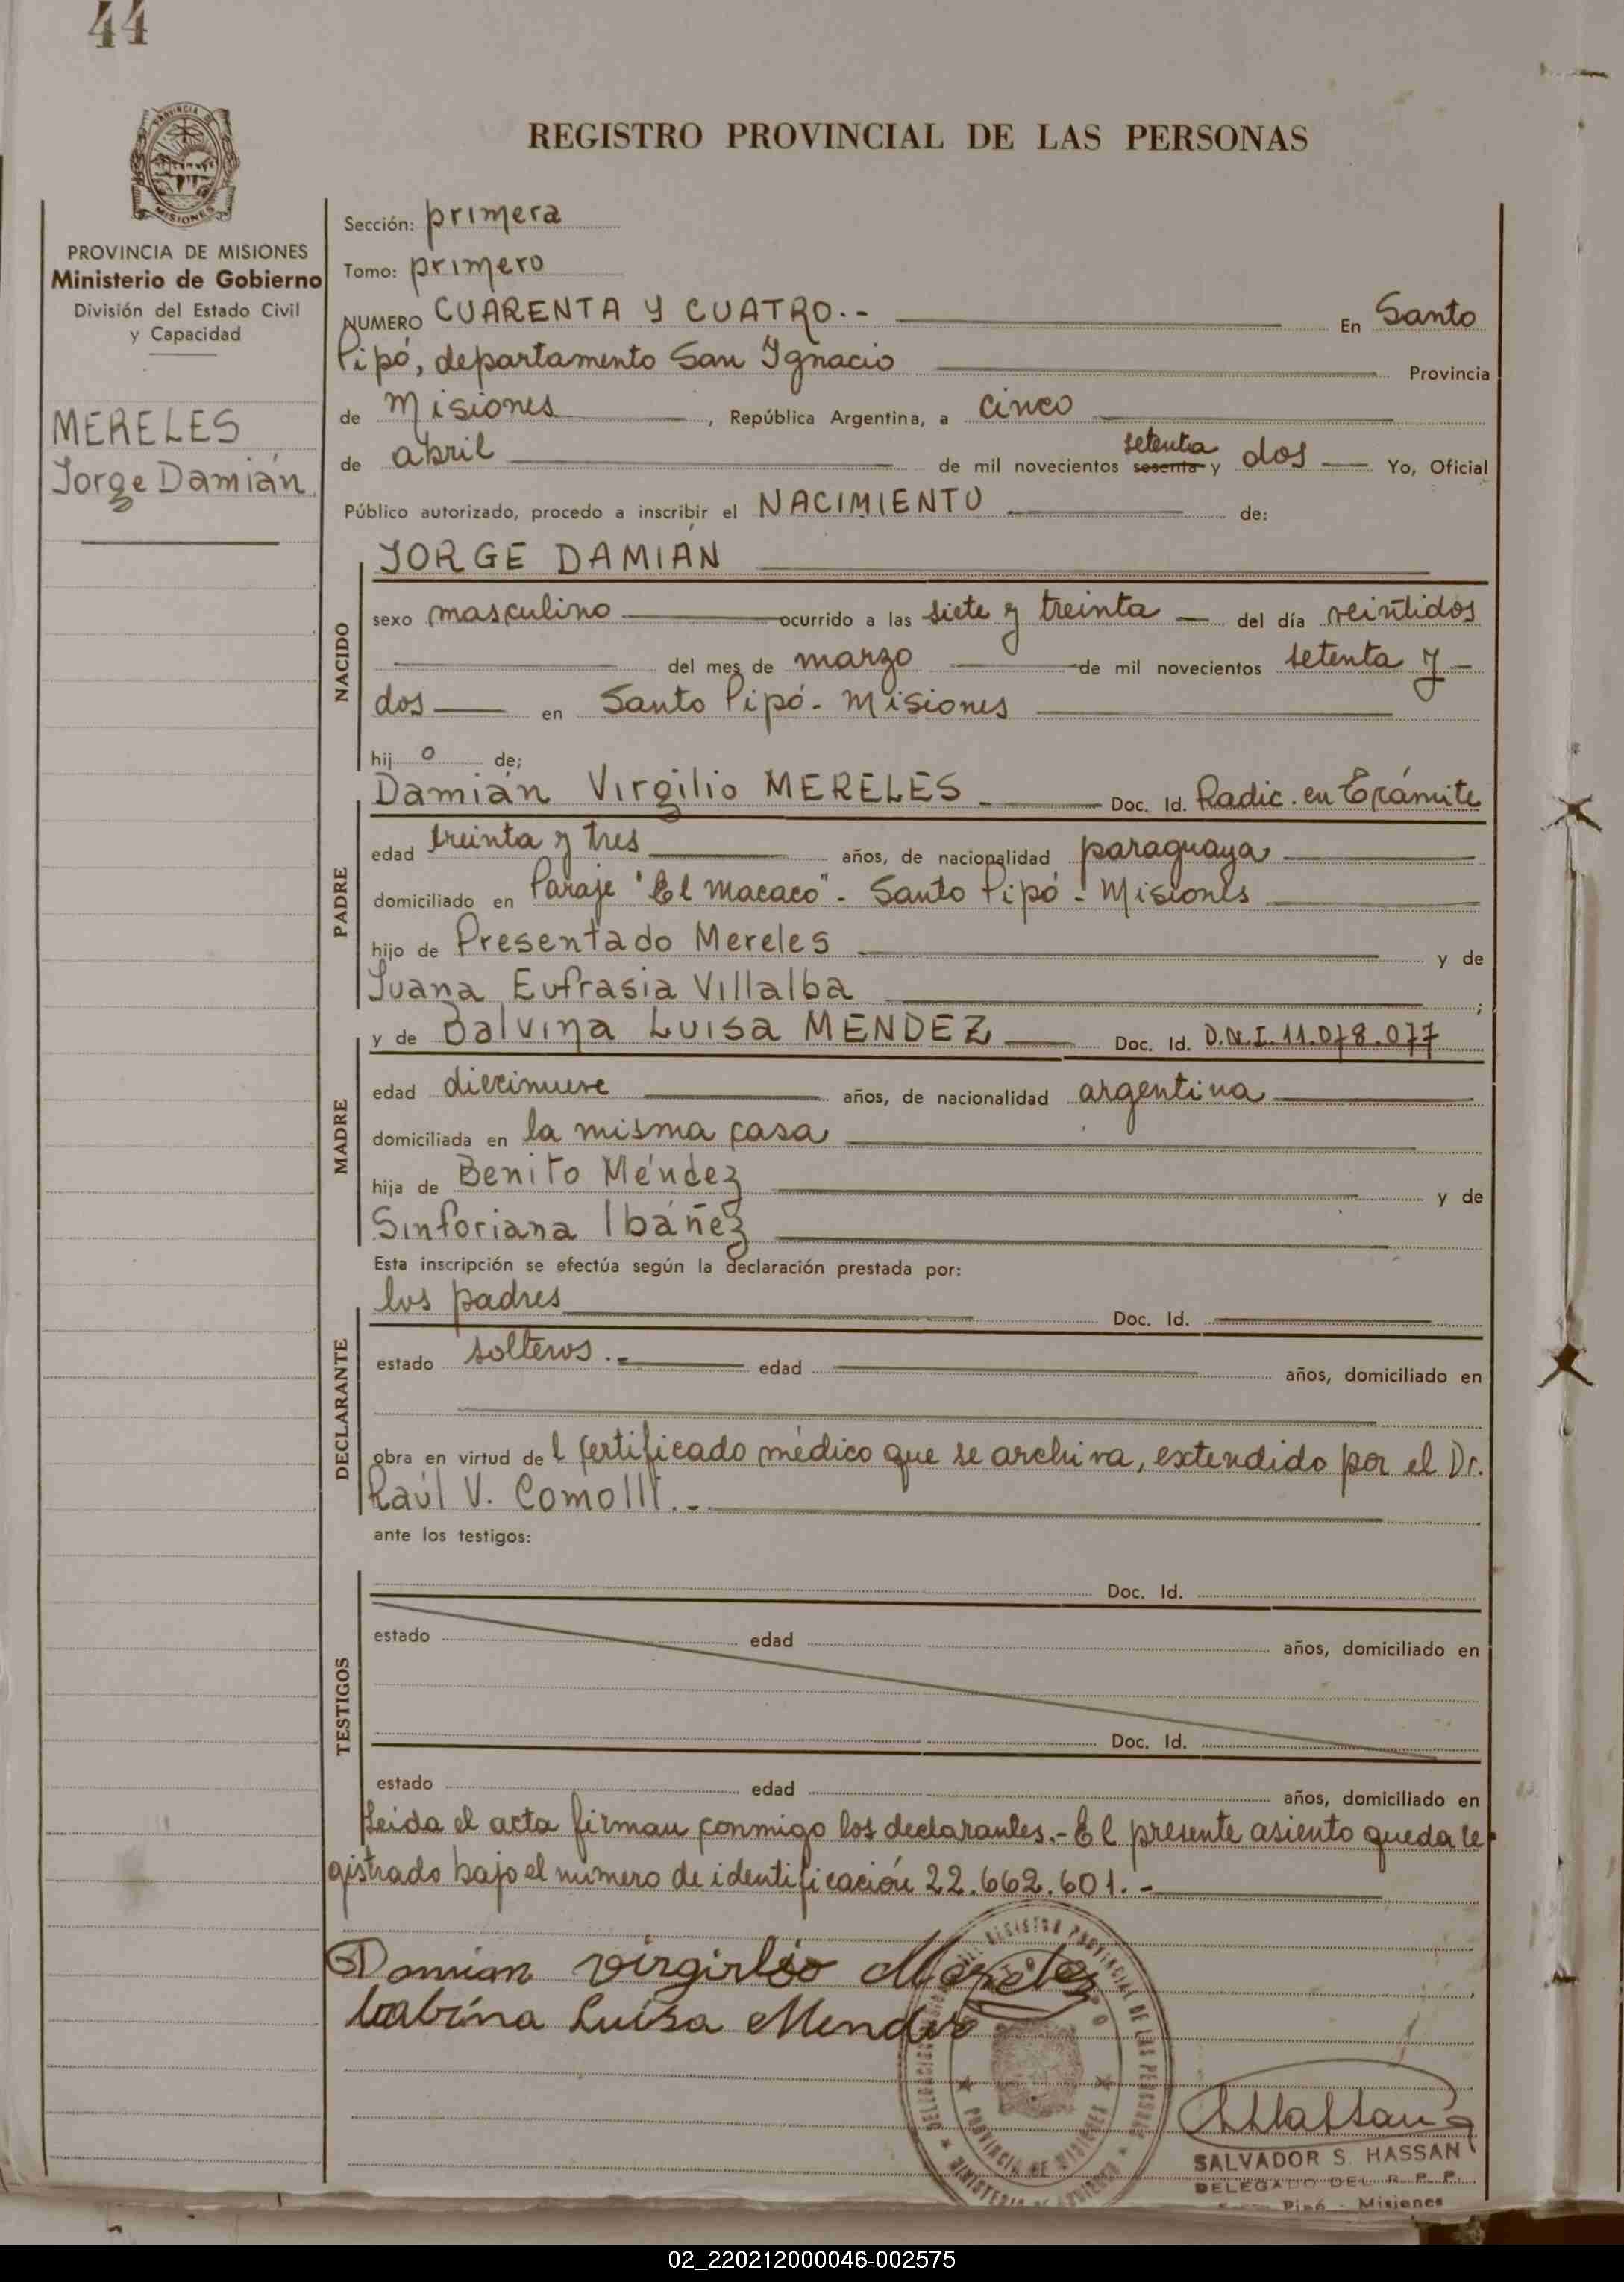 44
REGISTRO PROVINCIAL DE LAS PERSONAS
PROVINCIA DE MISIONES
Ministerio de Gobierno
División del Estado Civil
y Capacidad
MERELES
Jorge Damián
Sección: primera
Tomo: primero
NUMERO CUARENTA Y CUATRO.- En Santo
Pipó, departamento San Ignacio Provincia
de Misiones, República Argentina, a cinco
de abril de mil novecientos sesenta setenta y dos Yo, Oficial
Público autorizado, procedo a inscribir el NACIMIENTO de:
NACIDO
JORGE DAMIAN
sexo masculino ocurrido a las siete y treinta del día veintidos
del mes de marzo de mil novecientos setenta y
dos en Santo Pipó - Misiones
hijo de;
PADRE
Damián Virgilio MERELES Doc. Id. Radic. en Trámite
edad treinta y tres años, de nacionalidad paraguaya
domiciliado en Paraje "El Macaco" - Santo Pipó - Misiones
hijo de Presentado Mereles y de
Juana Eufrasia Villalba ;
MADRE
y de Balvina Luisa MENDEZ Doc. Id. D.N.I. 11.078.077
edad diecinueve años, de nacionalidad argentina
domiciliada en la misma casa
hija de Benito Méndez y de
Sinforiana Ibáñez
Esta inscripción se efectúa según la declaración prestada por:
DECLARANTE
los padres Doc. Id.
estado solteros.- edad años, domiciliado en
obra en virtud del certificado médico que se archiva, extendido por el Dr.
Raúl V. Comolli.-
ante los testigos:
TESTIGOS
Doc. Id.
estado edad años, domiciliado en
Doc. Id.
estado edad años, domiciliado en
Leida el acta firman conmigo los declarantes.- El presente asiento queda re
gistrado bajo el número de identificación 22.662.601.-
Damian Virgirlio Mereles
Luisa Mendez
PROVINCIA DE MISIONES
SALVADOR S. HASSAN
DELEGADO DEL R. P. P.
Pipó - Misiones
02_220212000046-002575